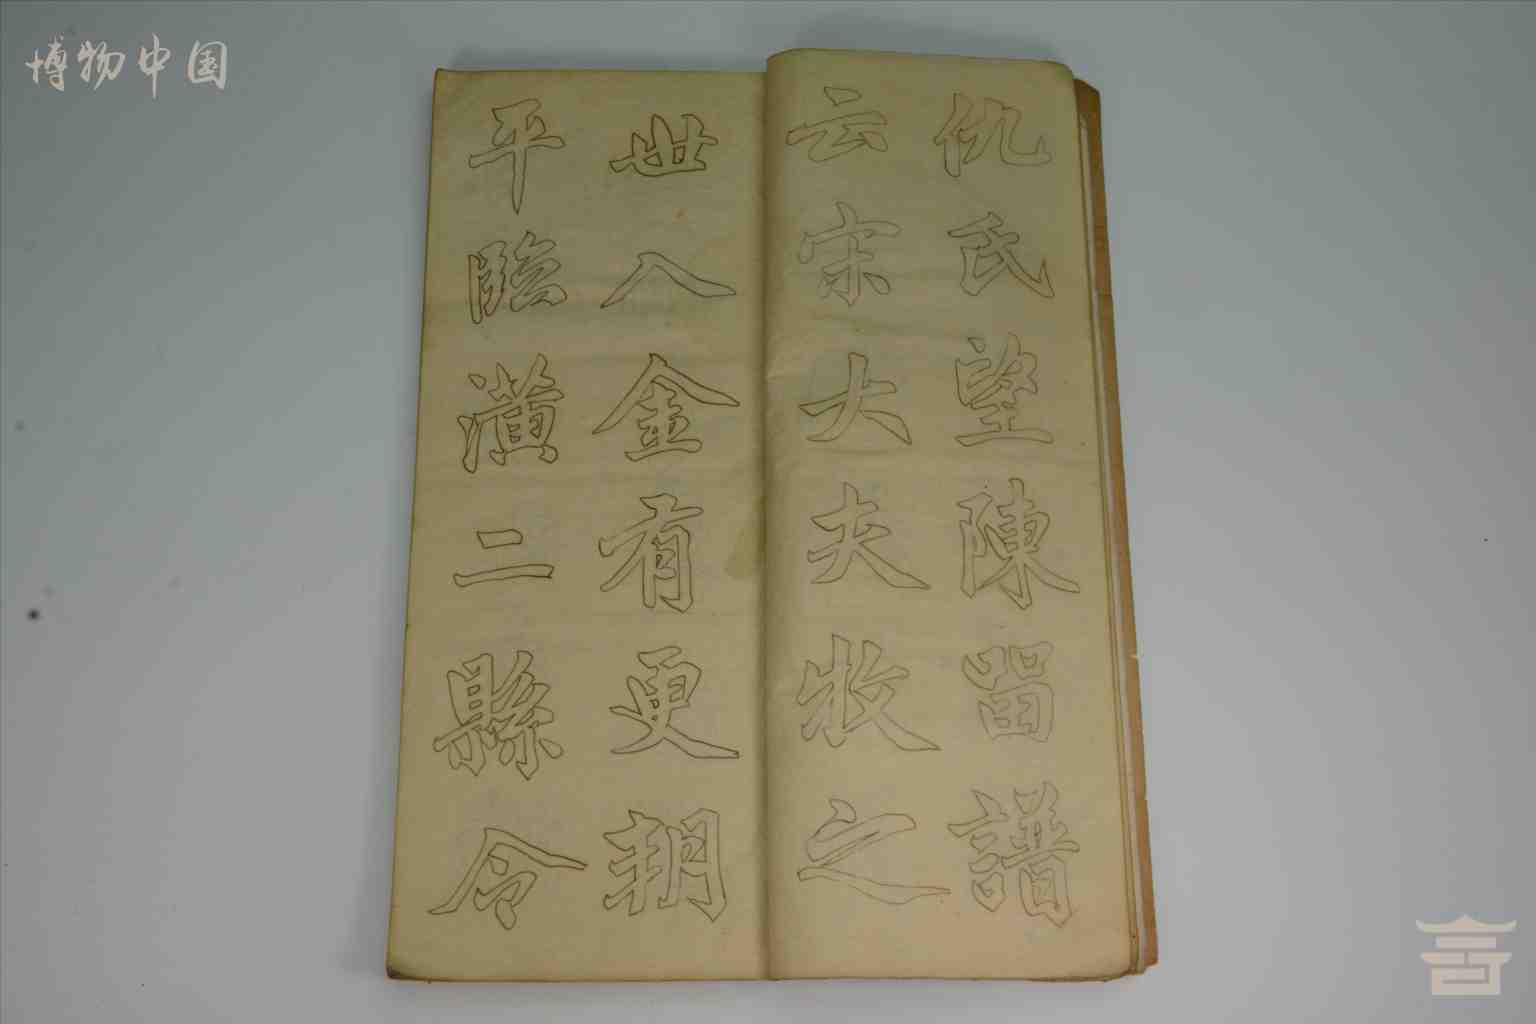 博物中国
仇氏望陳留譜
云宋大夫牧之
世入金有更朝
平臨潢二縣令